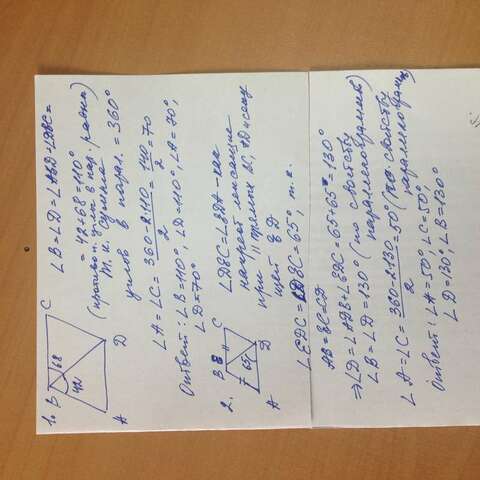 1. B C
42 68
A D
∠B=∠D=∠ABD+∠DBC=
=42+68=110°
(противоп. углы в пар. равны)
Т. к. сумма
углов в парал. = 360°
∠A=∠C=360-2·110/2=140/2=70
Ответ: ∠B=110°, ∠D=110°, ∠A=70°,
∠D=70°
2. B C
65
A D
∠DBC=∠BDA-как
накрест лежащие
при || прямых BC, AD и секу
щей BD
∠BDC=∠DBC=65°, т.к.
AB=BC=CD
⇒∠D=∠ADB+∠BDC=65+65=130°
∠B=∠D=130° (по свойству
параллелограмма)
∠A=∠C=360-2·130/2=50° (по свойству
параллелограмма)
Ответ: ∠A=50°, ∠C=50°,
∠D=130°, ∠B=130°